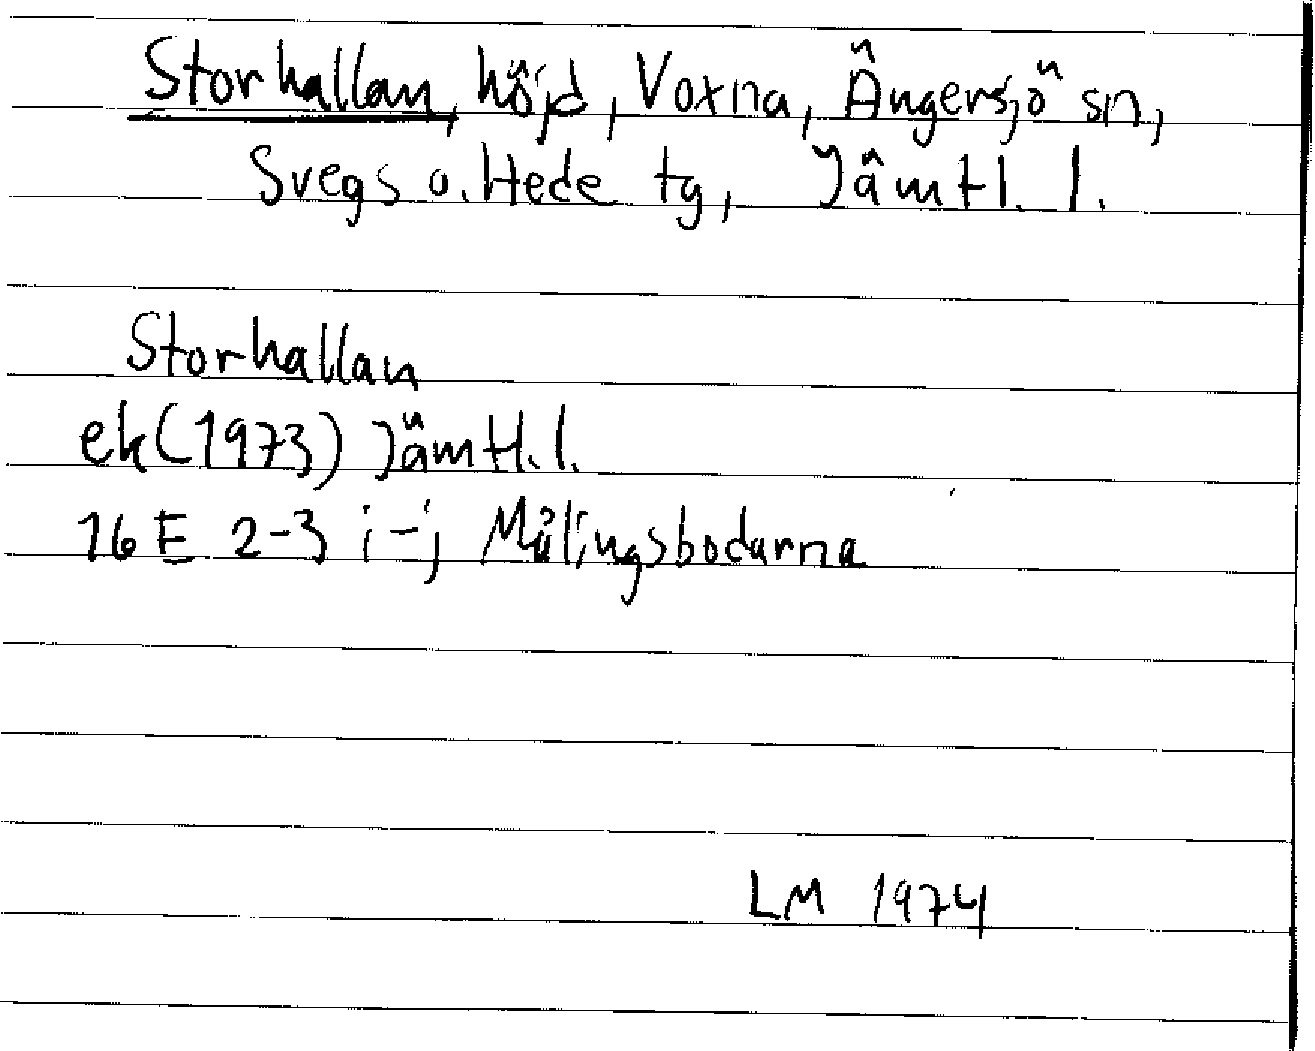 Storhallan, höjd, Voxna, Ängersjö sn,
Svegs o. Hede tg, Jämtl. l.
Storhallan
ek (1973) Jämtl. l.
16 E 2-3 i-j Målingsbodarna
LM 1974